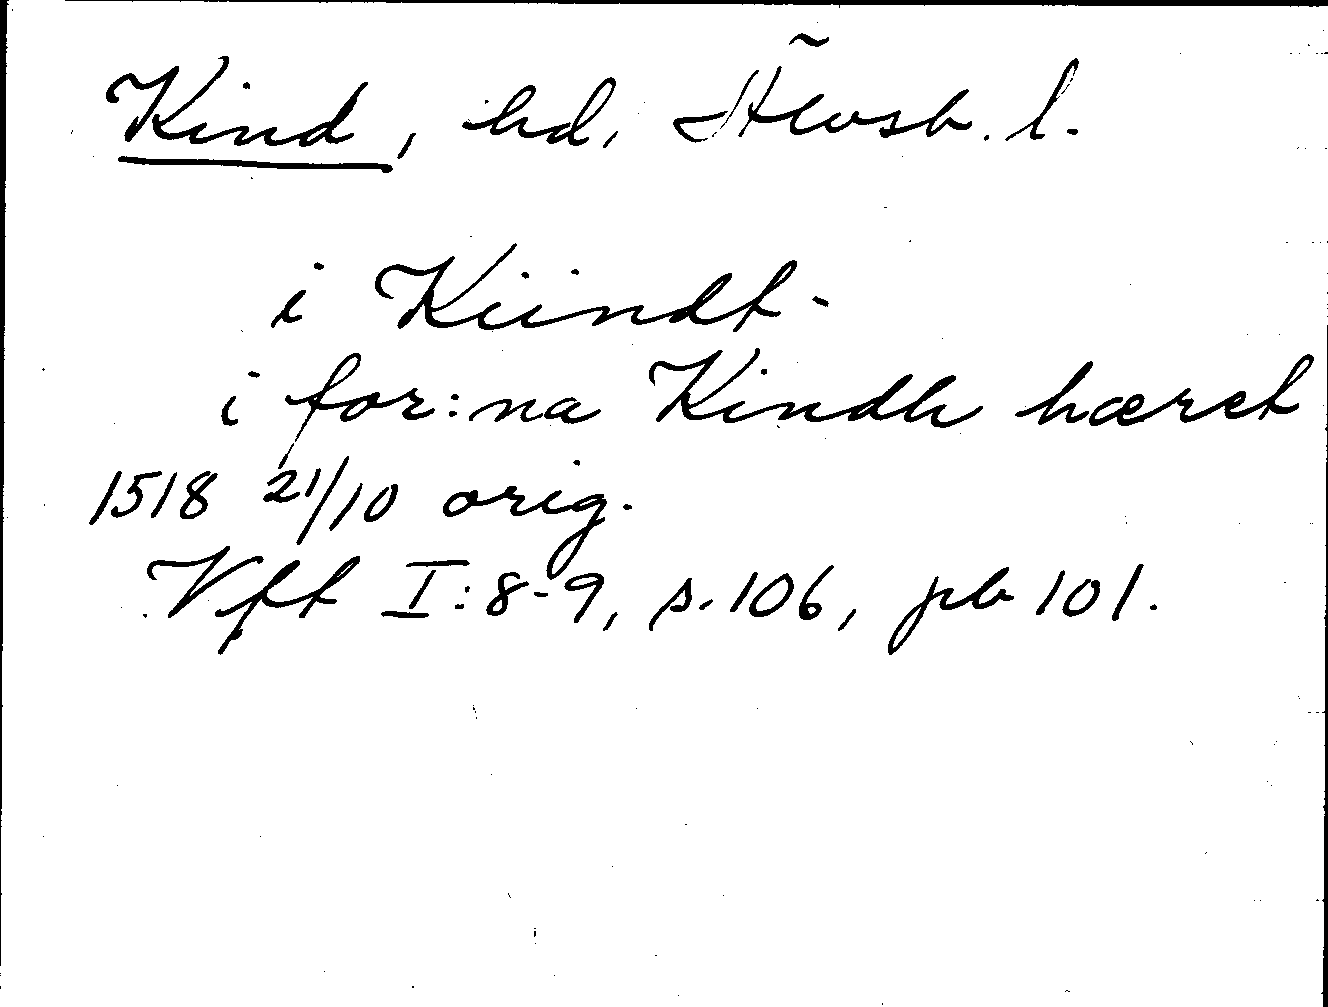 Kind, hd, Älvsb. l.
i Kiindt.
i for:na Kindh hæret
1518 21/10 orig.
Vfft I:8-9, s. 106, pb 101.